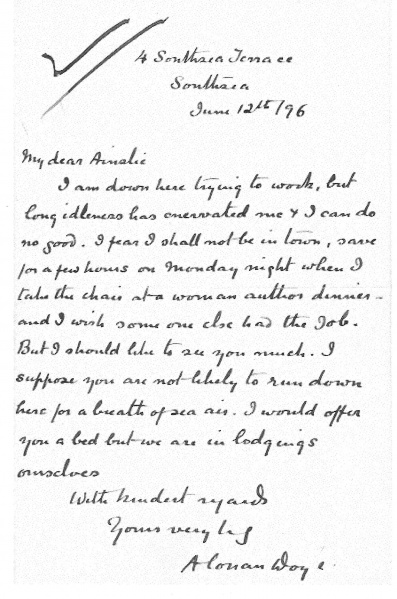 4 Southsea Terrace
Southsea
June 12th/96
My dear Ainslie
I am down here trying to work, but
long idleness has enervated me & I can do
no good. I fear I shall not be in town, save
for a few hours on Monday night when I
take the chair at a woman author dinner -
and I wish some one else had the job.
But I should like to see you much. I
suppose you are not likely to run down
here for a breath of sea air. I would offer
you a bed but we are in lodgings
ourselves
With kindest regards
Yours very
A Conan Doyle.